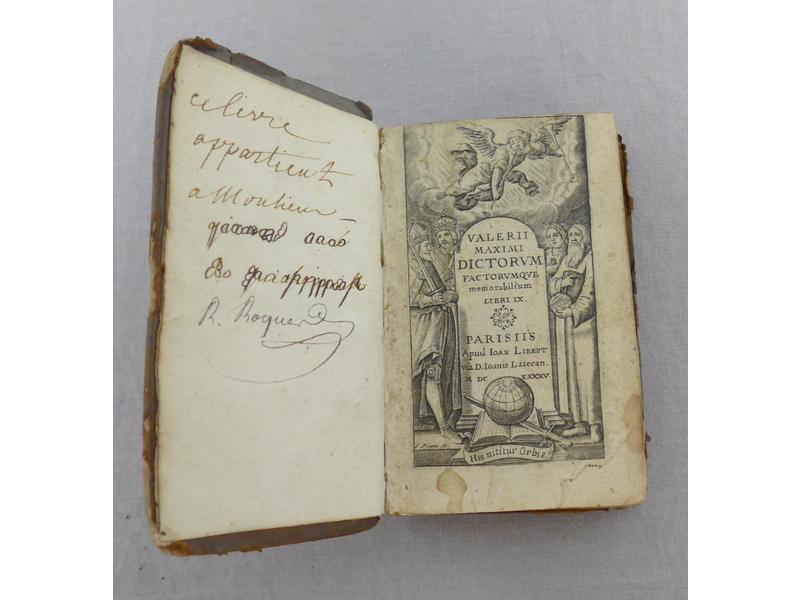 ce livre
appartient
a Monsieur
R. Roquer
VALERII
MAXIMI
DICTORVM
FACTORVMQVE
memorabilium
LIBRI IX.
PARISIIS
Apud IOAN LIBERT
via D. Ioanis Lateran.
M DC XXXXV
His nititur Orbis.